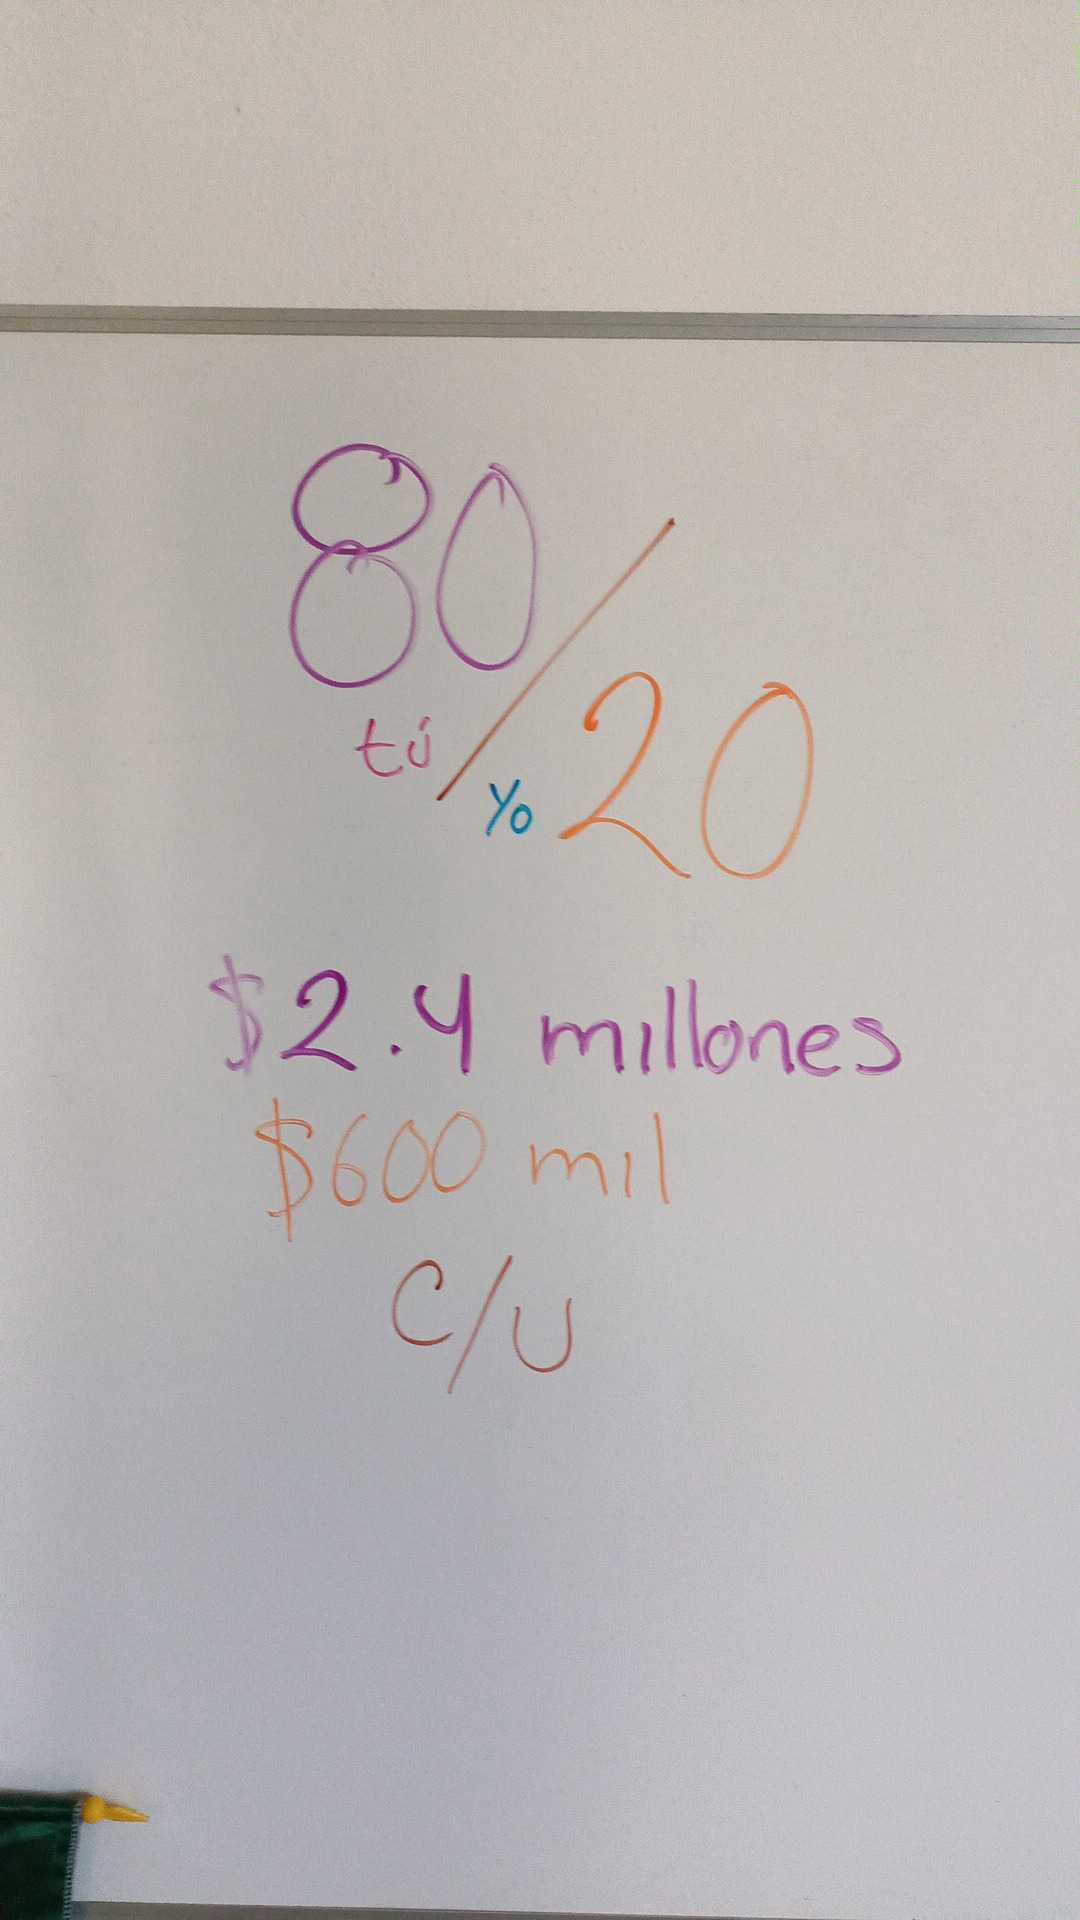 80/20
tú yo
$2.4 millones
$600 mil
C/U